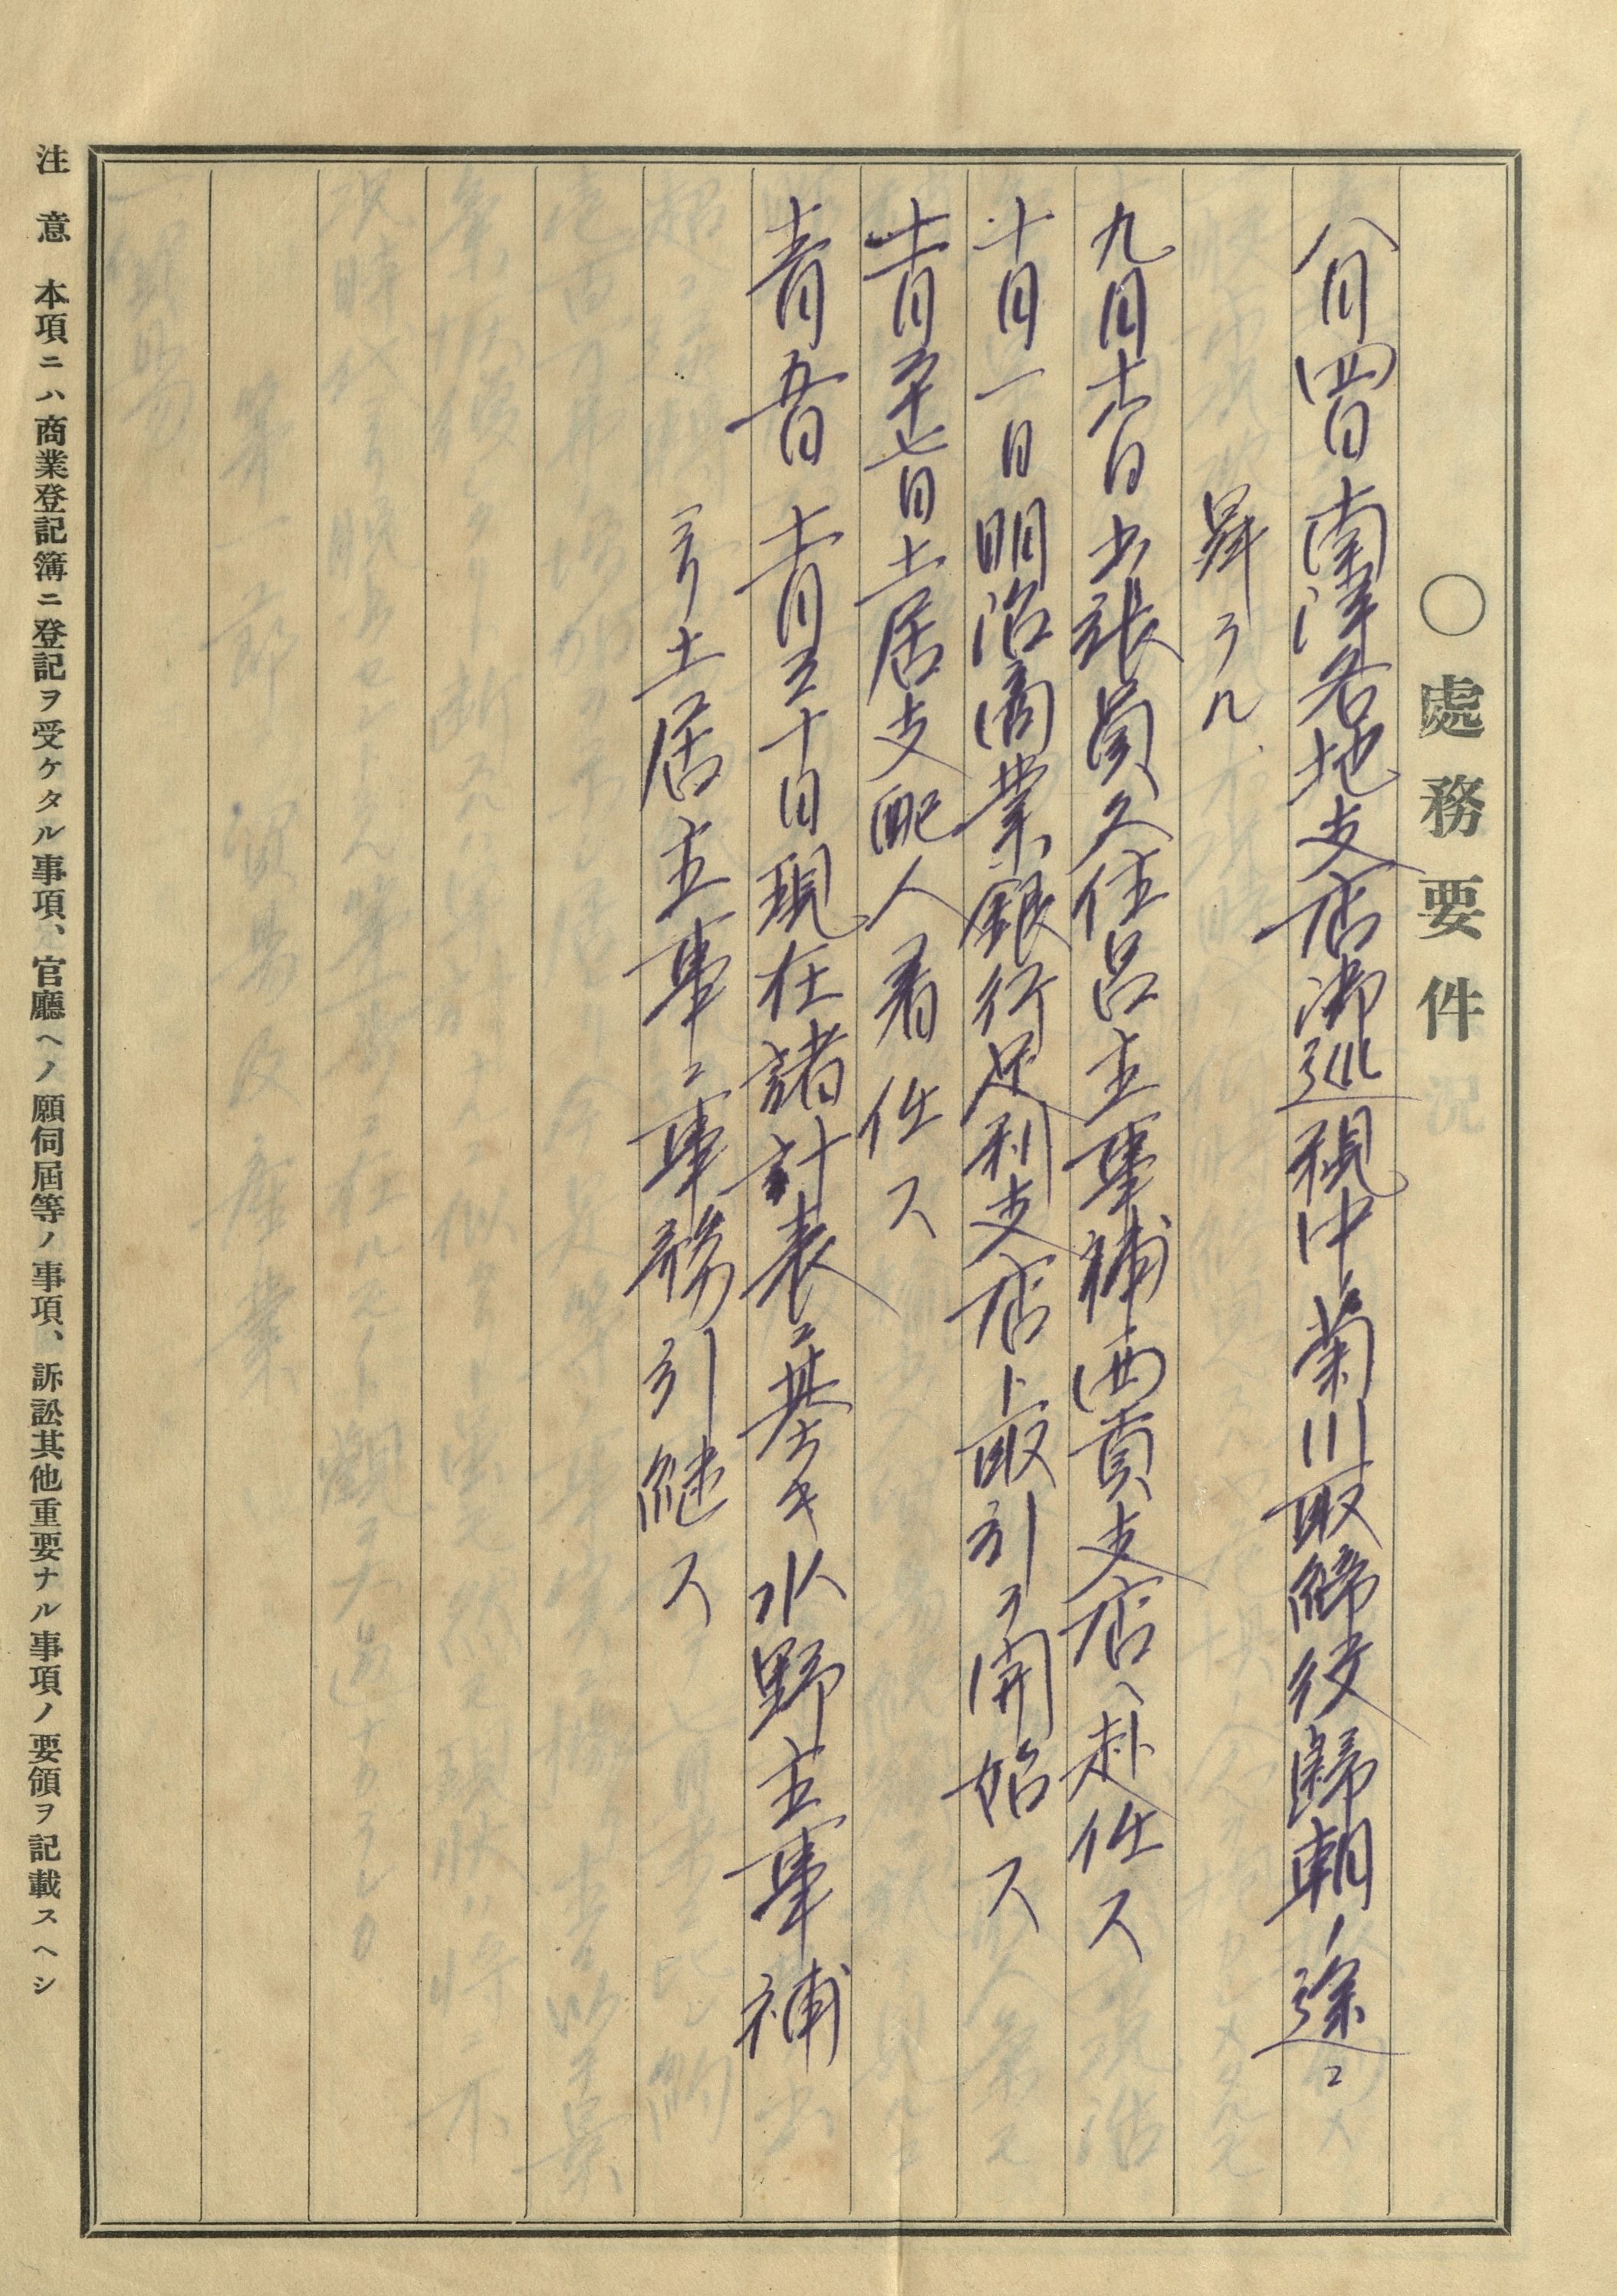 ○處務要件
八月四日南洋各地支店御巡視中菊川取締役歸朝ノ途ニ
昇ラル、
九月十六日出張員久住呂主事補西貢支店ヘ赴任ス
十月一日明治商業銀行足利支店ト取引ヲ開始ス
十一月二十七日土居支配人着任ス
十二月五日 十一月三十日現在諸計表ニ基キ水野主事補
ヨリ土居主事ニ事務引継ス
注意 本項ニハ商業登記簿ニ登記ヲ受ケタル事項、官廳ヘノ願伺屆等ノ事項、訴訟其他重要ナル事項ノ要領ヲ記載スヘシ